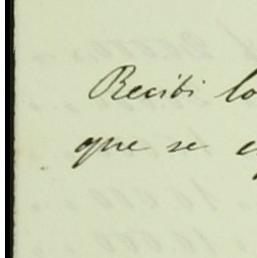 Recibi lo
que se